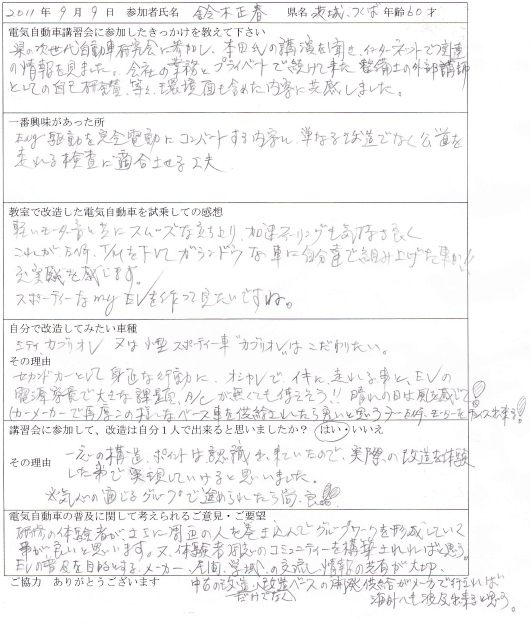 2011年9月9日 参加者氏名 鈴木正春 県名 茨城、つくば 年齢60才
電気自動車講習会に参加したきっかけを教えて下さい
県の次世代自動車研究会に参加し、本田氏の講演を聞き、インターネットで
の情報を見ました。会社の業務とプライベートで続けて来た整備士の外部講師
としての自己研鑽、等と、環境面も含めた内容に共感しました。
一番興味があった所
Eng駆動を完全電動にコンバートする内容に、単なる改造でなく公道を
走れる検査に適合させる工夫
教室で改造した電気自動車を試乗しての感想
軽いモーター音と共にスムーズな立ち上り、加速フィーリングも気持ち良く
これがENG、T/Mを下してガランドウな車に自分達で組み上げた車か!!
充実感を感じます。
スポーティーなmy EVを作って見たいですね。
自分で改造してみたい車種
シティカブリオレ 又は小型スポーティー車"カブリオレ"はこだわりたい。
その理由
セカンドカーとして身近な行動に、オシャレで、イキに走れる事と、EVの
電源容量で大きな課題、A/Cが無くても使えそう!!晴れの日は風を感じて!
(カーメーカーで再度この様なベース車を供給してくれたら良いと思う
講習会に参加して、改造は自分1人で出来ると思いましたか? はい・いいえ
その理由 一応の構造、ポイントは認識出来ていたので、実際の改造を体験
した事で実現していけると思いました。
※気心の通じるグループで進められたら尚、良
電気自動車の普及に関して考えられるご意見・ご要望
研修の体験者が、更に周囲の人を巻き込んでグループワークを形成していく
事が、良いと思います。又、体験者同志のコミュニティーを構築されればと思う。
EVの普及を目的とする、メーカー、学域、の交流し情報の共有が大切、
ご協力 ありがとうございます 中古の改造、改造ベースの開発供給がメーカで行われば
だけでなく 海外へも波及出来ると思う。